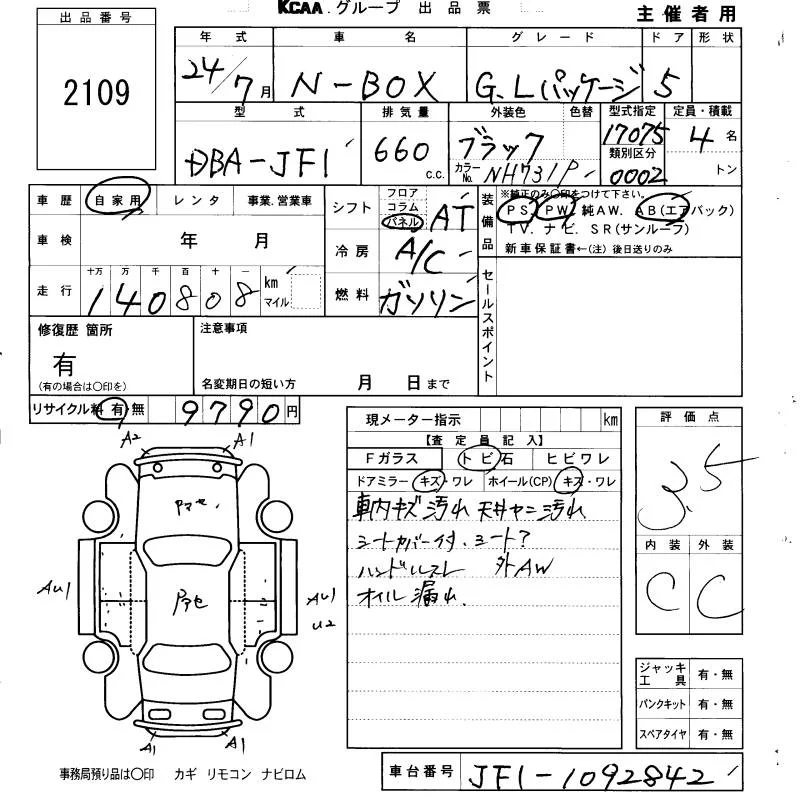 KCAA.グループ 出品票
主催者用
出品番号
2109
年式 車名 グレード ドア 形状
24/7月 N-BOX G.Lパッケージ 5
型式 排気量 外装色 色替 型式指定 定員・積載
DBA-JF1 660 c.c. ブラック 17075 4名
カラーNo. NH731P 類別区分 0002 トン
車歴 自家用 レンタ 事業.営業車
車検 年 月
走行 十万 万 千 百 十 一
140808 km マイル
シフト フロア コラム パネル AT
冷房 A/C
燃料 ガソリン
装備品 ※純正のみ○印をつけて下さい。
PS. PW. 純AW. AB(エアバック)
TV. ナビ. SR(サンルーフ)
新車保証書←(注)後日送りのみ
セールスポイント
修復歴 箇所
有
(有の場合は○印を)
注意事項
名変期日の短い方 月 日まで
リサイクル料 有・無 9790円
現メーター指示 km
【査定員記入】
Fガラス トビ石 ヒビワレ
ドアミラー キズ・ワレ ホイール(CP) キズ・ワレ
車内キズ汚れ 天井ヤニ汚れ
シートカバー付.シート?
ハンドルスレ 外AW
オイル漏れ.
評価点
3.5
内装 外装
C C
A2 A1
アマセ.
アマセ
AU1 AU1
U2
A1 A1
ジャッキ工具 有・無
パンクキット 有・無
スペアタイヤ 有・無
事務局預り品は○印 カギ リモコン ナビロム
車台番号 JF1-1092842